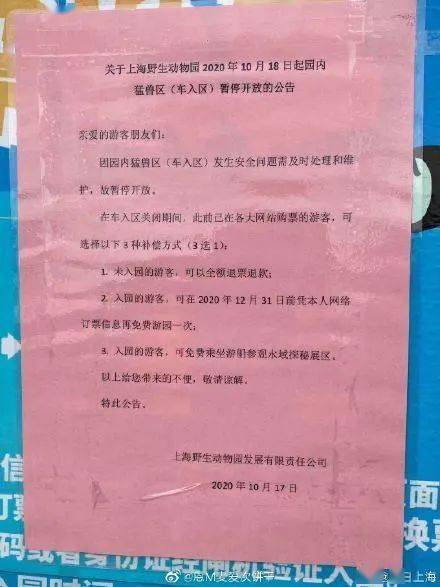 关于上海野生动物园 2020 年 10 月 18 日起园内
猛兽区（车入区）暂停开放的公告
亲爱的游客朋友们：
因园内猛兽区（车入区）发生安全问题需及时处理和维
护，故暂停开放。
在车入区关闭期间，此前已在各大网站购票的游客，可
选择以下 3 种补偿方式（3 选 1）：
1. 未入园的游客，可以全额退票退款；
2. 入园的游客，可在 2020 年 12 月 31 日前凭本人网络
订票信息再免费游园一次；
3. 入园的游客，可免费乘坐游船参观水域探秘展区。
以上给您带来的不便，敬请谅解。
特此公告。
上海野生动物园发展有限责任公司
2020 年 10 月 17 日
信
订票
页面
换票
码或者身份证经闸机验证入
日上海